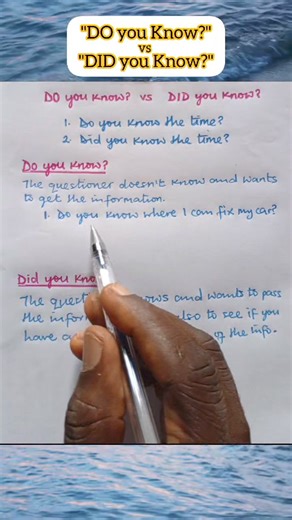 "DO you Know?"
vs
"DID you Know?"
DO you know? vs DID you know?
1. Do you know the time?
2. Did you know the time?
Do you know?
The questioner doesn't know and wants
to get the information.
1. Do you know where I can fix my car?
Did you
The and wants to pass
the to see if you
have the info.